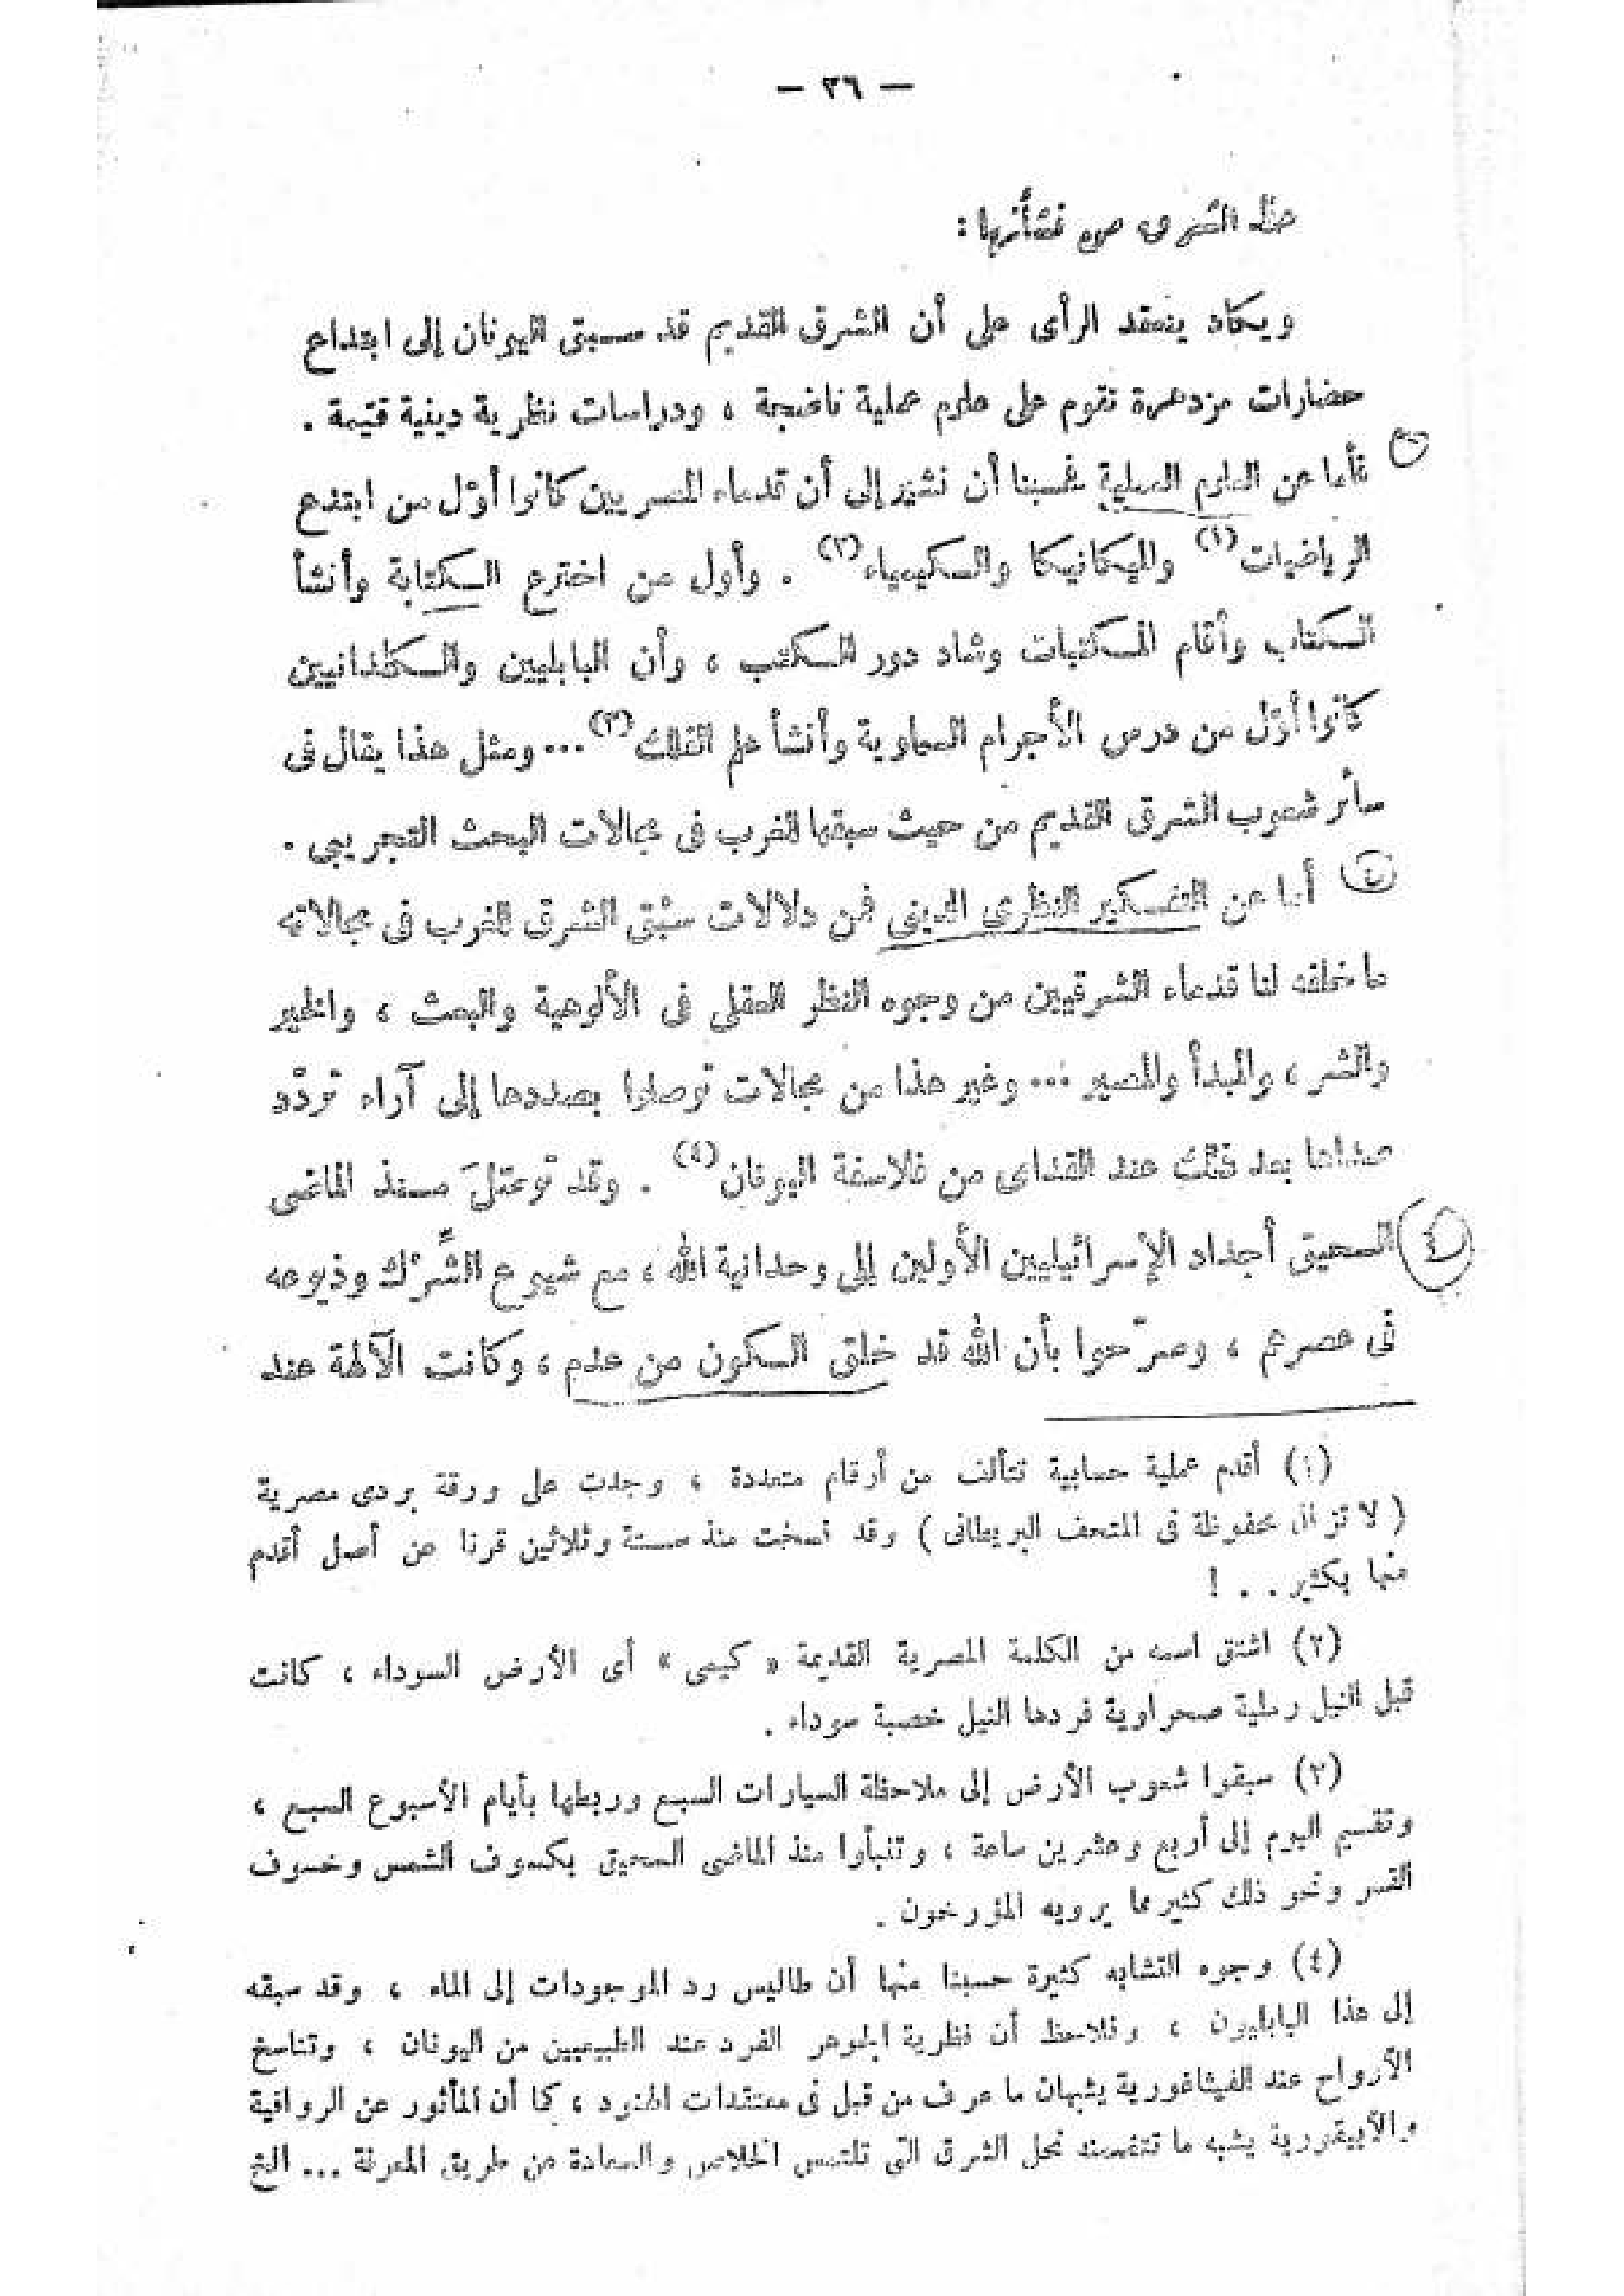 — ٣٦ —
حظ الشرق من نشأتها :
ويكاد ينعقد الرأى على أن الشرق القديم قد سبق اليونان إلى ابتداع
حضارات مزدهرة تقوم على علوم عملية ناضجة ، ودراسات نظرية دينية قيّمة .
فأما عن العلوم العملية فحسبنا أن نشير إلى أن قدماء المصريين كانوا أوّل من ابتدع
الرياضيات (١) والميكانيكا والكيمياء (٢) . وأول من اخترع الكتابة وأنشأ
الكتاب وأقام المكتبات وشاد دور الكتب ، وأن البابليين والكلدانيين
كانوا أوّل من درس الأجرام السماوية وأنشأ علم الفلك (٣) ... ومثل هذا يقال فى
سائر شعوب الشرق القديم من حيث سبقها الغرب فى مجالات البحث التجريبى .
أما عن التفكير النظرى الدينى فمن دلالات سبْق الشرق للغرب فى مجالاته
ما خلفه لنا قدماء الشرقيين من وجوه النظر العقلى فى الألوهية والبعث ، والخير
والشر ، والمبدأ والمصير ... وغير هذا من مجالات توصلوا بصددها إلى آراء تردّد
صداها بعد ذلك عند القدامى من فلاسفة اليونان (٤) . وقد توصّلَ منذ الماضى
السحيق أجداد الإسرائيليين الأولين إلى وحدانية الله ، مع شيوع الشِّرْك وذيوعه
فى عصرهم ، وصرّحوا بأن الله قد خلق الكون من عدم ، وكانت الآلهة عند
(١) أقدم عملية حسابية تتألف من أرقام متعددة ، وجدت على ورقة بردى مصرية
( لا تزال محفوظة فى المتحف البريطانى ) وقد نسخت منذ ستة وثلاثين قرنا عن أصل أقدم
منها بكثير . . !
(٢) اشتق اسمه من الكلمة المصرية القديمة « كيمى » أى الأرض السوداء ، كانت
قبل النيل رملية صحراوية فردها النيل خصبة سوداء .
(٣) سبقوا شعوب الأرض إلى ملاحظة السيارات السبع وربطها بأيام الأسبوع السبع ،
وتقسيم اليوم إلى أربع وعشرين ساعة ، وتنبأوا منذ الماضى السحيق بكسوف الشمس وخسوف
القمر ونحو ذلك كثير مما يرويه المؤرخون .
(٤) وجوه التشابه كثيرة حسبنا منها أن طاليس رد الموجودات إلى الماء ، وقد سبقه
إلى هذا البابليون ، ونلاحظ أن نظرية الجوهر الفرد عند الطبيعيين من اليونان ، وتناسخ
الأرواح عند الفيثاغورية يشبهان ما عرف من قبل فى معتقدات الهنود ، كما أن المأثور عن الرواقية
والأبيقورية يشبه ما تتضمنه نحل الشرق التى تلتمس الخلاص والسعادة عن طريق المعرفة ... الخ